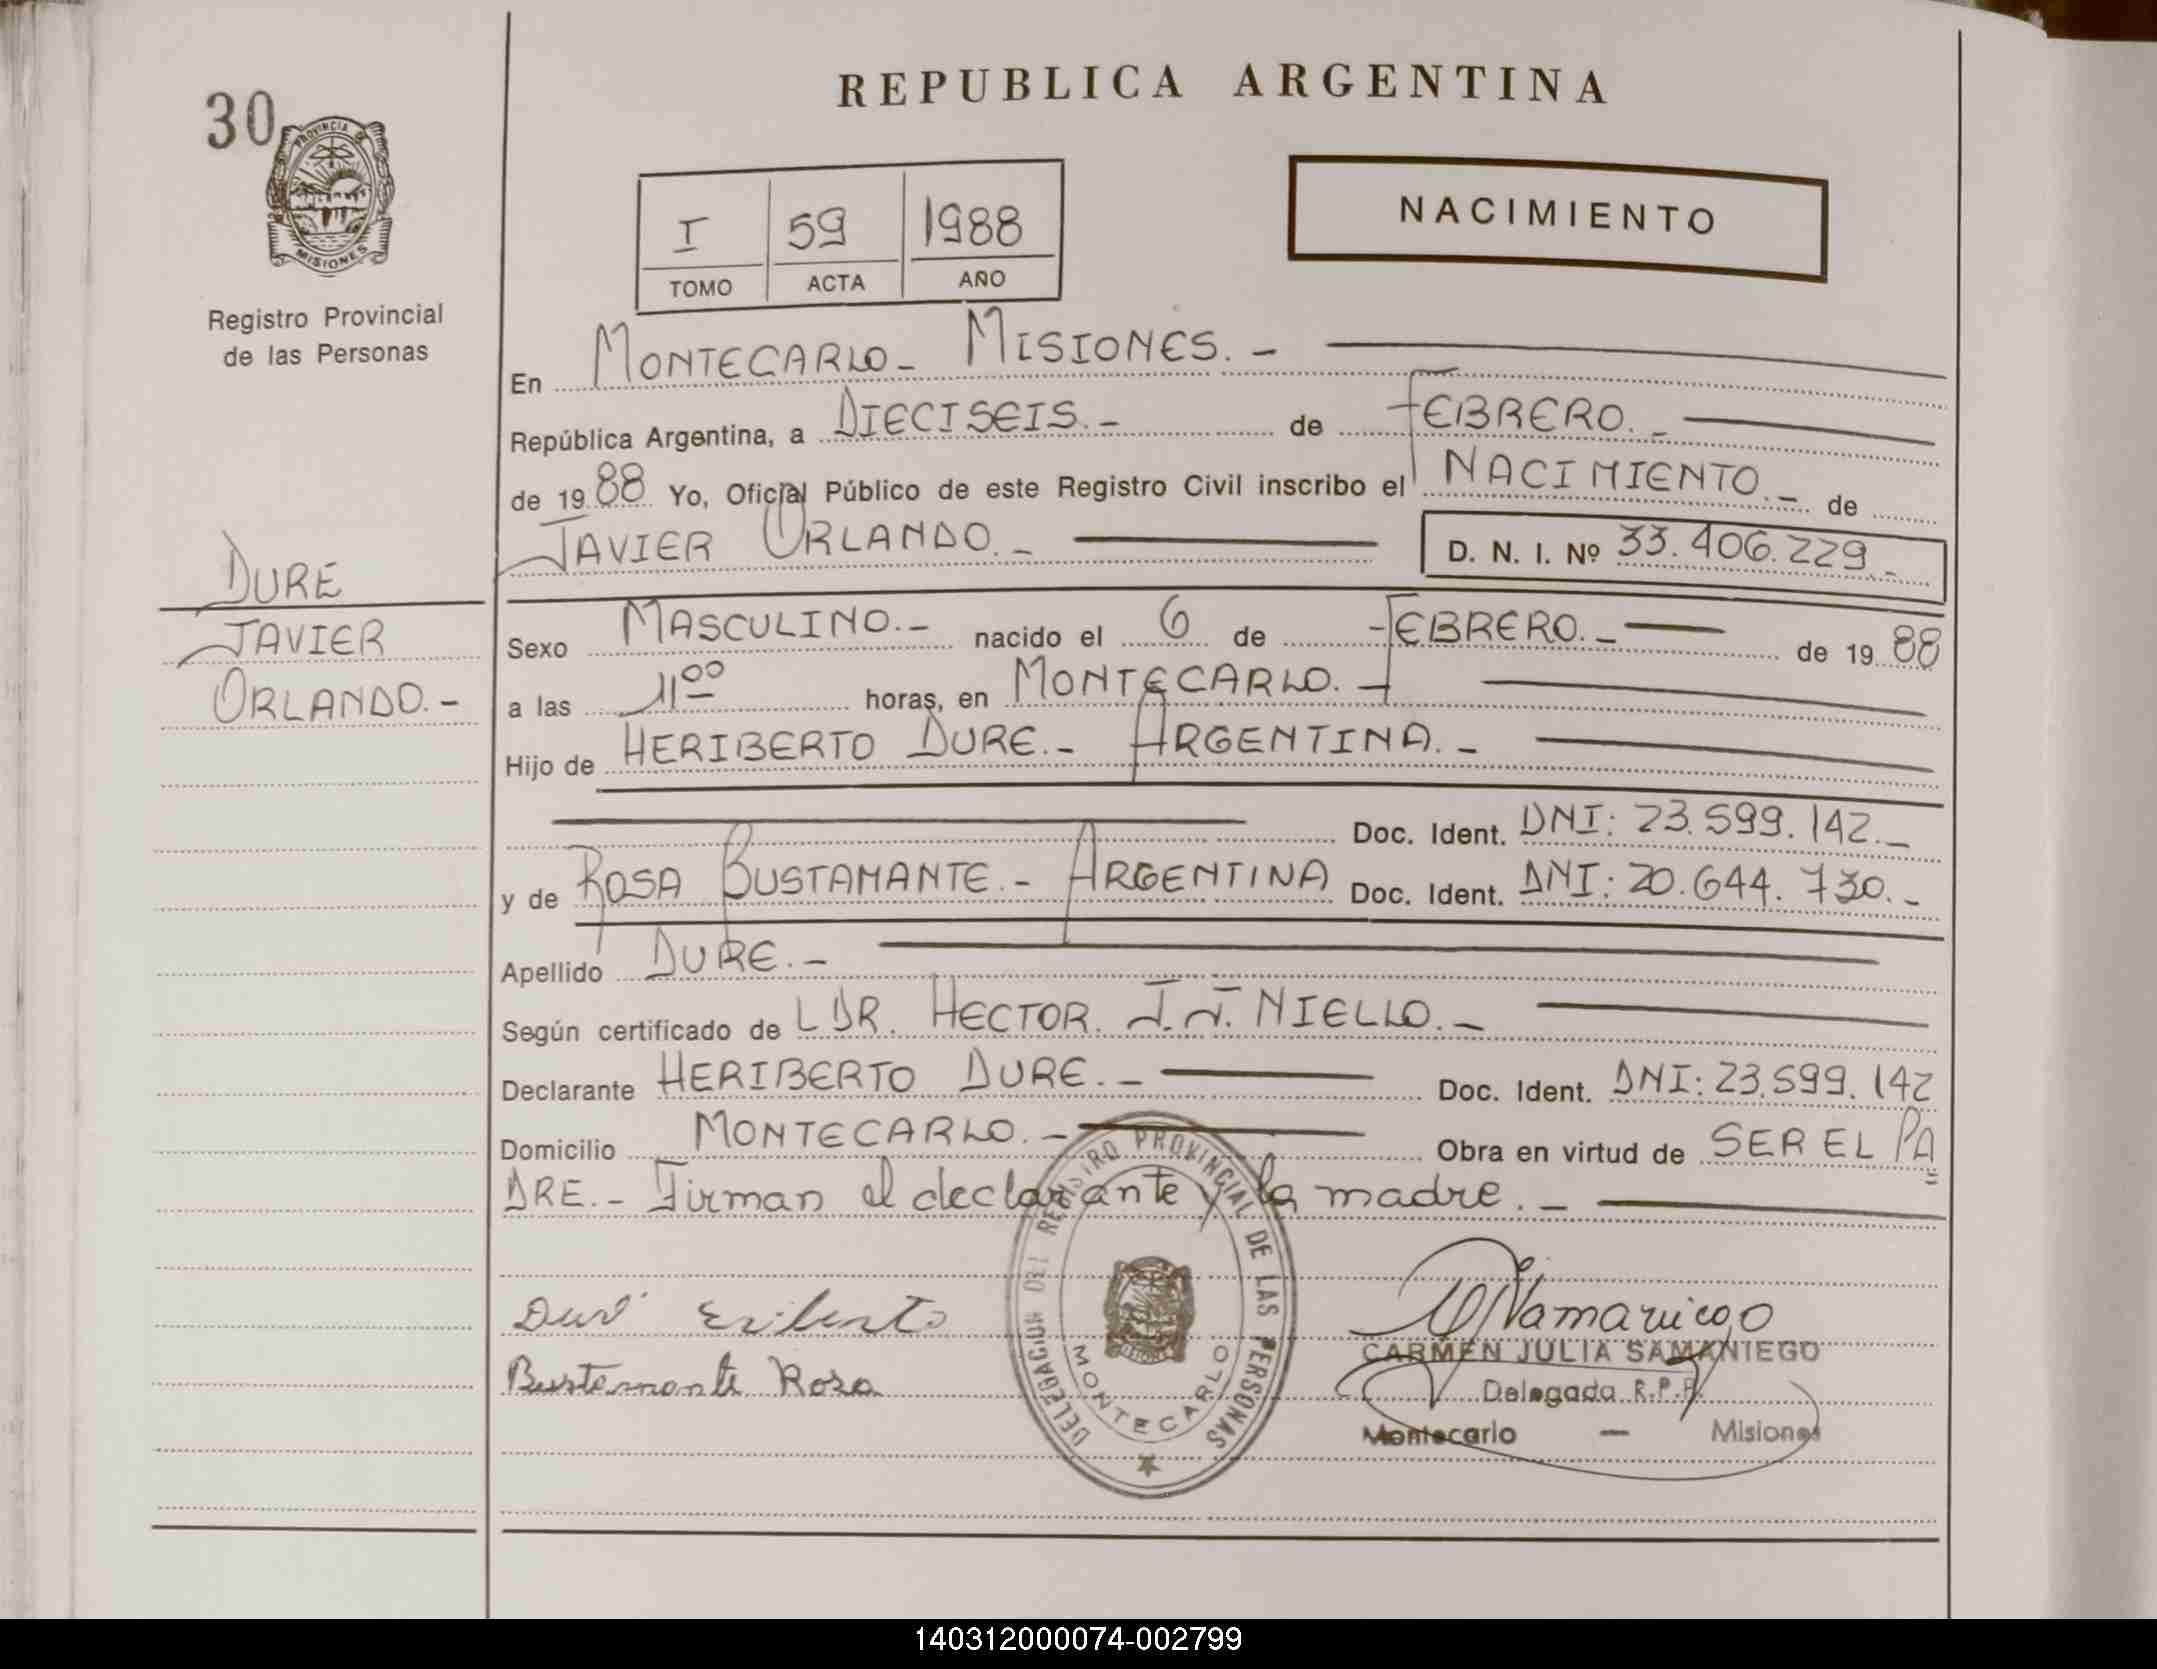 30
PROVINCIA DE
MISIONES
Registro Provincial
de las Personas
REPUBLICA ARGENTINA
I 59 1988
TOMO ACTA AÑO
NACIMIENTO
En MONTECARLO - MISIONES. -
República Argentina, a DIECISEIS. - de FEBRERO. -
de 1988 Yo, Oficial Público de este Registro Civil inscribo el NACIMIENTO. - de
JAVIER ORLANDO. - D. N. I. Nº 33.406.229. -
DURE
JAVIER
ORLANDO. -
Sexo MASCULINO. - nacido el 6 de FEBRERO. - de 1988
a las 11⁰⁰ horas, en MONTECARLO. -
Hijo de HERIBERTO DURE. - ARGENTINA. -
Doc. Ident. DNI: 23.599.142. -
y de ROSA BUSTAMANTE. - ARGENTINA Doc. Ident. DNI: 20.644.730. -
Apellido DURE. -
Según certificado de L DR. HECTOR. J. J. NIELLO. -
Declarante HERIBERTO DURE. - Doc. Ident. DNI: 23.599.142
Domicilio MONTECARLO. - Obra en virtud de SER EL PA=
DRE. - Firman el declarante y la madre. -
DELEGACION DEL REGISTRO PROVINCIAL DE LAS PERSONAS
MISIONES
MONTECARLO
Duré Eriberto
Bustamante Rosa
CARMEN JULIA SAMANIEGO
Delegada R.P.P.
Montecarlo - Misiones
140312000074-002799